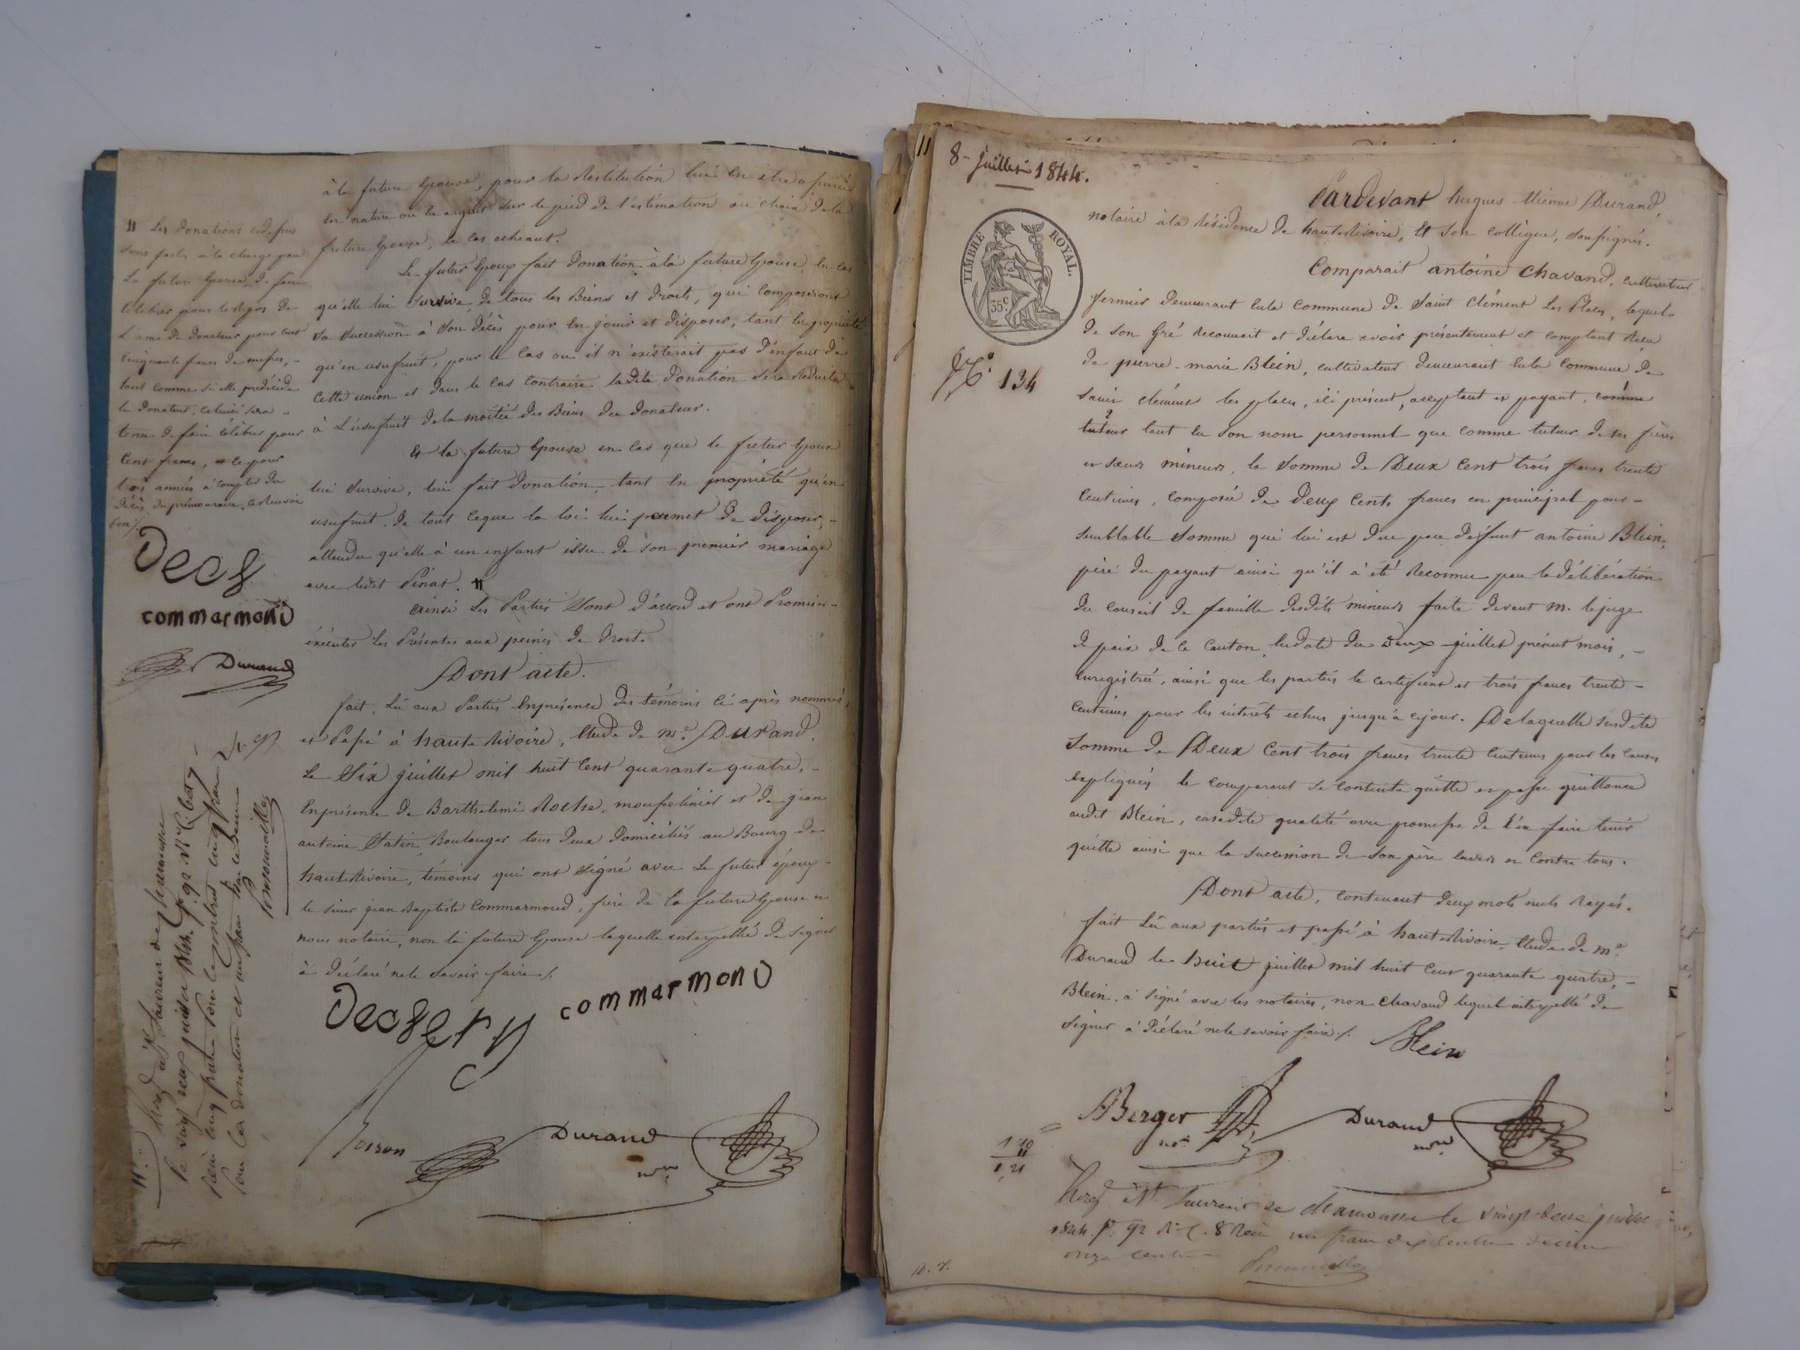 à la future Epouse, pour la Restitution lui en être
en nature ou en argent sur le pied de l'estimation au choix de la
future Epouse, le cas échéant.
Le futur Epoux fait Donation à la future Epouse, en cas
qu'elle lui survive, de tous les Biens et Droits, qui composeront
sa succession à son décès pour en jouir et disposer, tant en propriété
qu'en usufruit, pour le cas où il n'existerait pas d'enfant de
cette union et dans le cas contraire ladite Donation sera Réduite
à l'usufruit de la moitié des Biens du Donateur.
Et la future Epouse en cas que le futur Epoux
lui survive, lui fait Donation, tant en propriété qu'en
usufruit, de tout ceque la loi lui permet de disposer,
attendu qu'elle à un enfant issu de son premier mariage
avec ledit Pinat. #
Ainsi les Parties sont d'accord et ont Promis
exécuter les Présentes aux peines de Droit.
Dont acte.
fait, Lû aux Parties Enprésence des témoins ci après nommés,
et Passé à hauteRivoire, Etude de me. Durand,
Le Six juillet mil huit Cent quarante quatre,
Enprésence de Barthelemi Roche, et de jean
antoine Satin Boulanger tous Deux Domiciliés au Bourg de
hauteRivoire, témoins qui ont Signé avec le futur époux
le sieur jean Baptiste Commarmond, père de la future Epouse et
nous notaire, non la future Epouse laquelle interpellée de Signer
à Déclaré nele savoir faire /.
commarmonD
Durand
# Les Donations cidessus
sont faites à la charge par
La future Epouse de faire
célébrer pour le Repos de
L'ame du Donateur pour cent
cinquante francs de messes,
tout comme si elle prédécède
le Donateur, celuici sera
tenu de faire célébrer pour
Cent francs, et ce pour
trois années à compter du
Décès du prémourant.
commarmonD
Durand
8 juillet 1844.
TIMBRE ROYAL.
35 c
No. 134
Pardevant hugues Etienne Durand,
notaire à la Résidence de hauteRivoire, et Son collègue, soussignés.
Comparait antoine Chavand, cultivateur
fermier Demeurant enla Commune de Saint Clément Les Places, lequel
de son Gré Reconnait et Déclare avoir présentement et comptant Reçu
de pierre marie Blein, cultivateur Demeurant enla commune de
saint clément les places, ici présent, acceptant et payant, comme
tuteur tant en son nom personnel que comme tuteur de ses frères
et sœurs mineurs, la Somme de Deux Cent trois francs trente
Centimes, composée de Deux Cents francs en principal pour
semblable Somme qui lui est Due par défunt antoine Blein,
père du payant ainsi qu'il à été Reconnu par la Délibération
du conseil de famille desdits mineurs faite Devant M. lejuge
de paix de ce Canton, endate du Deux juillet présent mois,
enregistrée, ainsi que les parties le certifient et trois francs trente
Centimes pour les intérêts échus jusqu'à cejour. Delaquelle susdite
Somme de Deux Cent trois francs trente Centimes pour les causes
expliquées le comparant se contente quitte et passe quittance
audit Blein, ensadite qualité avec promesse de l'en faire tenir
quitte ainsi que la succession de son père envers et contre tous.
Dont acte, contenant deux mots nuls Rayés.
fait Lû aux parties et passé à hauteRivoire, Etude de me.
Durand le huit juillet mil huit Cent quarante quatre,
Blein, à signé avec les notaires, non Chavand lequel interpellé de
Signer à Déclaré nele savoir faire /.
Blein
ABerger
Durand
1 10
11
1,21
Enregé à St Laurent de Chamousset le vingt deux juillet
1844 f. 92 R. C. 8 Reçu un franc dix centimes décime
onze centimes